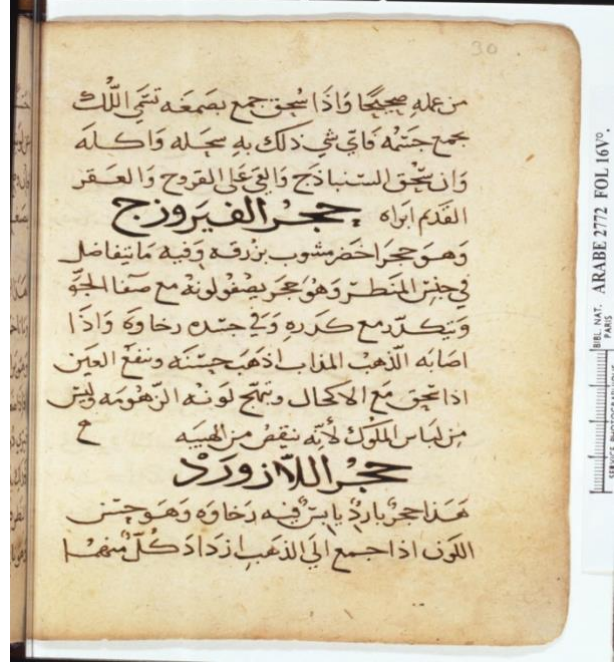 30
من عمله صحيحًا وَاذَا سُحق جمع بصمغه تسمّى اللّك
بجمع جسمه فاىّ شي ذلك به سحله وَاكله
وَان سحق السّنباذج وَالقي على القروح وَالعقر
القديم ابرَاه حجرُ الفيروزج
وَهوَ حجرَ اخضر مشوب بزرقه وَفيه مَا يتفاضل
في حسن المنظر وَهوَ حجر يصفو لونهُ مع صَفا الجوّ
وَيتكدّر مع كدره وَفي جسده رخاوَة وَاذَا
اصَابه الذّهب المذاب اذهَب حسنَه وَينفعُ العَين
اذا سحق مَع الاكحال وَ لونه الزّهومه وَليسَ
من لبَاس الملوك لأنّه ينقص من الهيبه
حجر اللّازورد
هَذا حجرٌ باردٌ يابسٌ فيه رَخاوَه وَهوَ حسن
اللوَن اذا جمع الي الذهب ازدَادَ كلّ منهمَا
ARABE 2772 FOL 16Vº.
BIBL. NAT.
PARIS
SERVICE PHOTOGRAPHIQUE